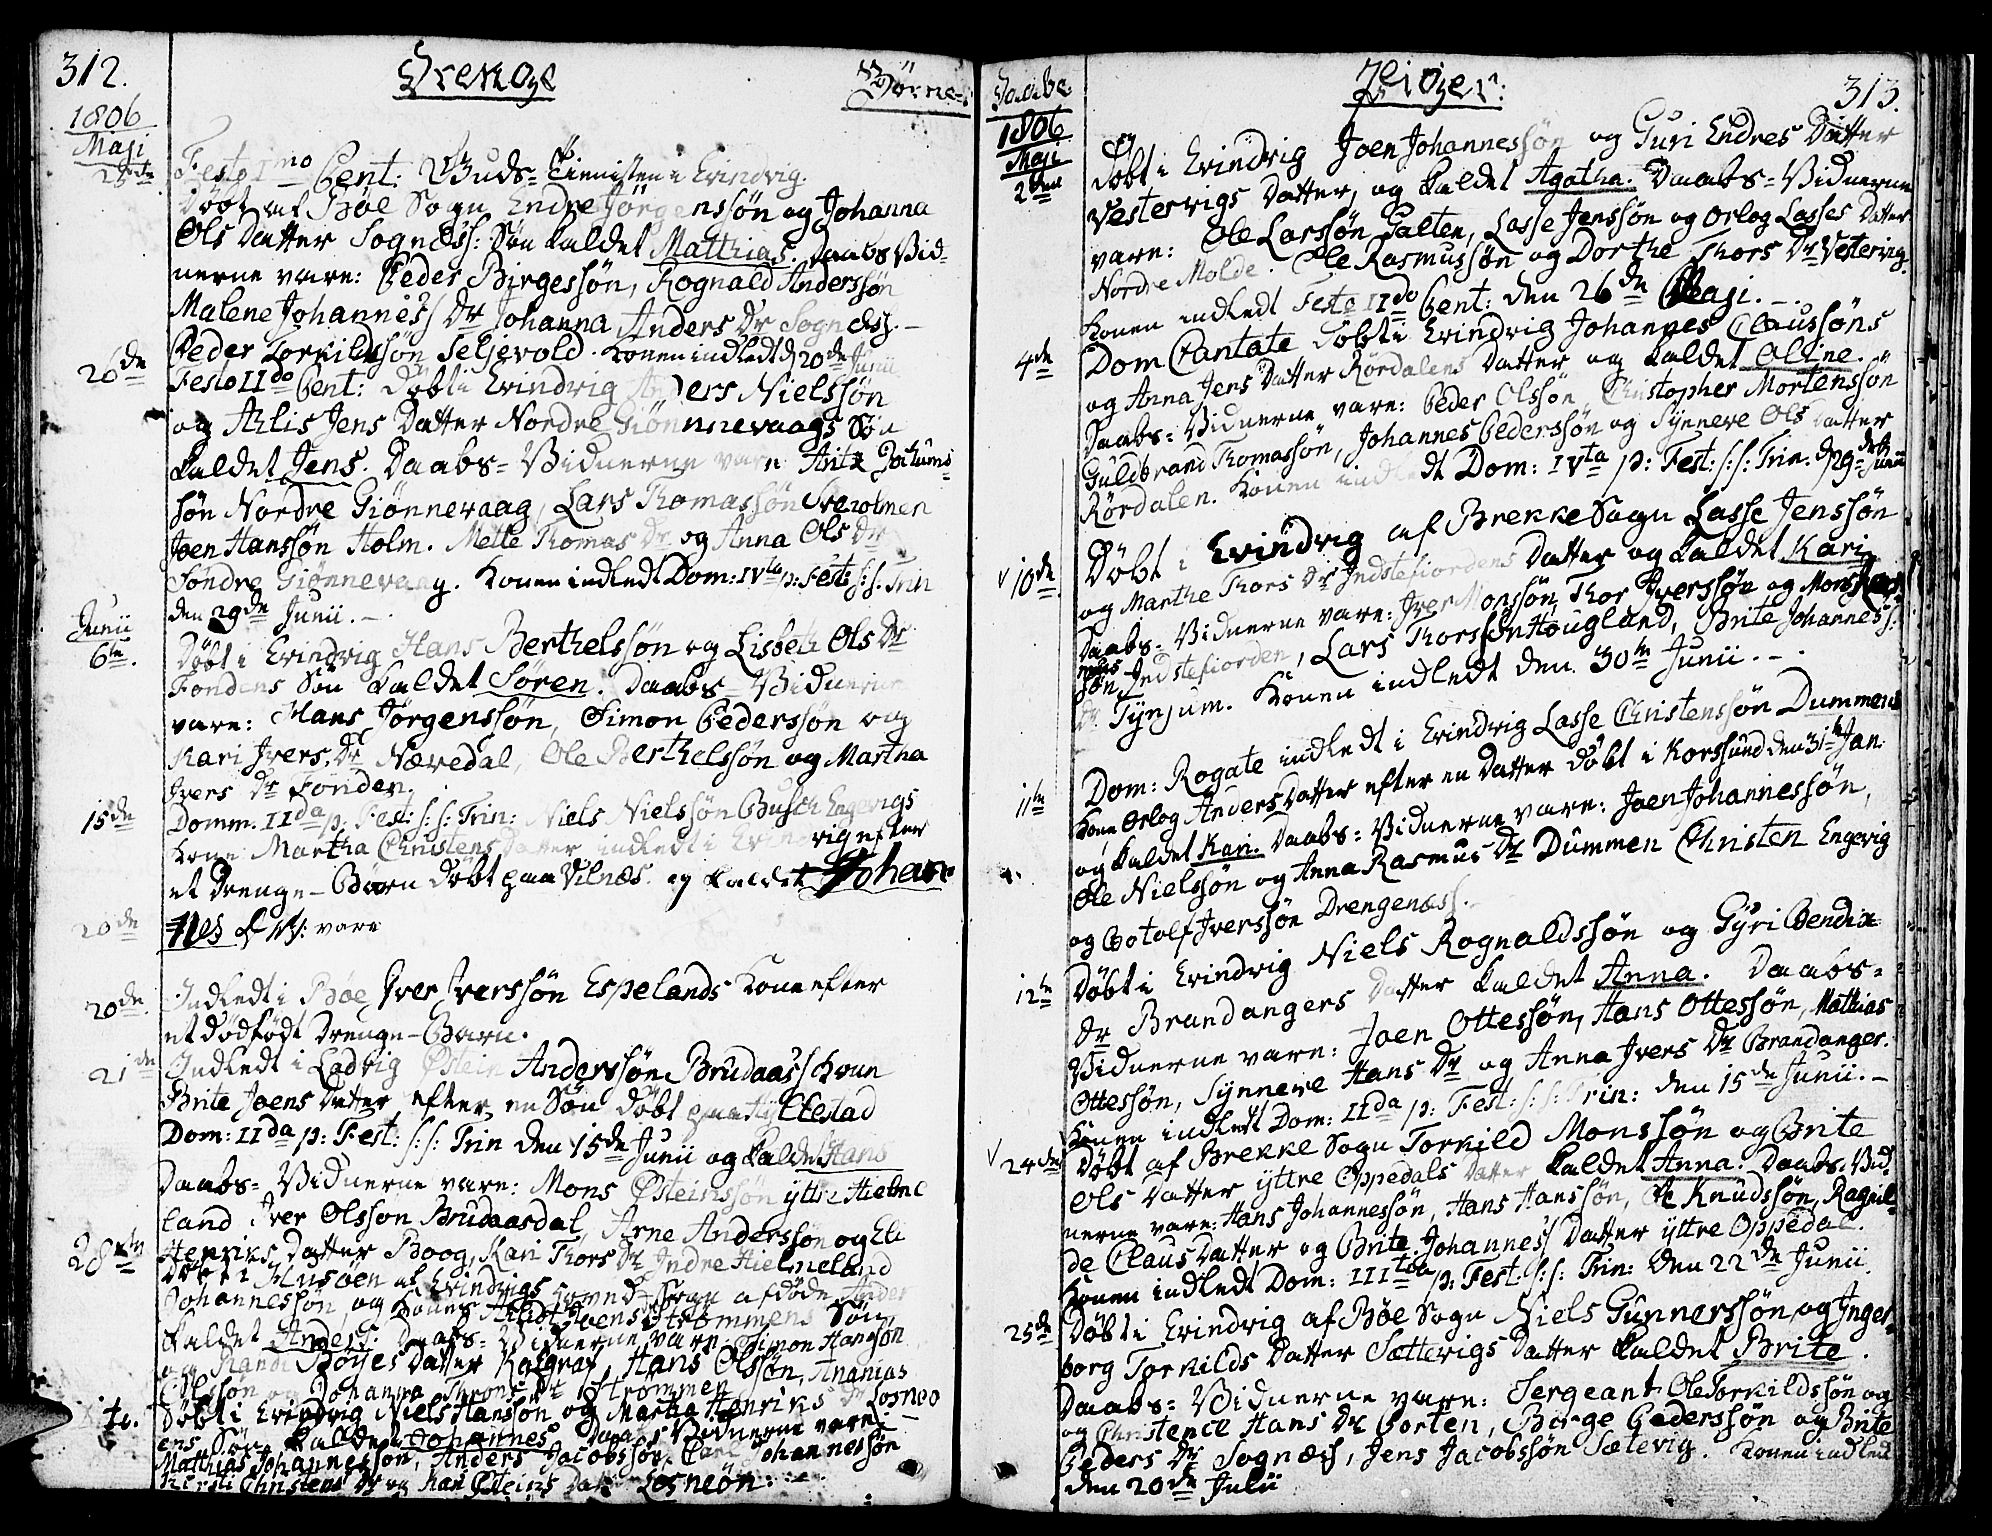 312.
Drenge
Børne-
1806
Maji
25de
Festo Imo Pent: Buds=Tienisten i Evindvig.
Døbt af Bøe Sogn Endre Jörgenssön og Johanna
Ols Datter Sognæss: Søn kaldet Matthias. Daabs Vid-
nerne vare: Peder Birgessön, Rognald Anderssön
Malene Johanness Dr Johanna Anders Dr Sognæss. -
Peder Torkildssön Seljevold. Konen indledt d 20de Junii
26de
Festo IIdo Pent: döbt i Evindvig Anders Nielssön
og Ahlis Jens Datter Nordre Giönnevaags Søn
kaldet Jens. Daabs=Vidnerne vare
sön Nordre Giönnevaag, Lars Thomassön
Joen Hanssön Holm. Mette Thomas Dr og Anna Ols Dr
Søndre Giönnevaag. Konen indledt Dom: IVta p: Fest: s: s: Trin
den 29de Junii. -
Junii
6te.
Døbt i Evindvig Hans Berthelssön og Lisbeth Ols Dr
Fondens Søn kaldet Sören. Daabs=Vidnerne
vare: Hans Jörgenssön, Simon Pederssön og
Kari Ivers Dr Nævedal, Ole Berthelssön og Martha
Ivers Dr Fonden.
15de
Domm. IIda p: Fest: s: s: Trin: Niels Nielssön Busch Engevigs
Kone Martha Christens Datter indledt i Evindvig efter
et Drenge-Barn döbt paa Vilnæs og kaldet Johan-
20de
nes D W: vare
20de
Indledt i Bøe Iver Iverssön Espelands Kone efter
et dödfödt Drenge-Barn.
21de
Indledt i Ladvig Østein Anderssön Brudaass Kone
Brite Joens Datter efter en Søn döbt paa Kyllestad
Dom: IIda p: Fest: s: s: Trin den 15de Junii og kaldet Hans
Daabs=Vidnerne vare: Mons Østeinssön yttre Hielme
land Iver Olsson Brudaasdal, Arne Anderssön og Eli
Henriks Datter Boog, Kari Thors Dr Indre Hielmeland
28de
Döbt i Husöen af Evindvigs Hovned=Sogn afdöde Anders
Johannessön og Kones Joens Dr Strömmens Søn
kaldet Anders: Daabs=Vidnerne vare: Simon Hanssön
og Randi Böyes Datter Kalgraf, Hans Olssön, Ananias
Olssön og Johanna Throns Dr Strömmen
Døbt i Evindvig Niels Hanssön og Martha Henriks Dr Losneö
ens Søn kaldet Johannes Daabs Vidnerne vare
Matthias Johannessön, Anders Jacobssön, Carl Johannessön
Christens Dr og Kari Østeins Datter Losneön.
Daabe.
Piger:
313.
1806
Maji
2den
Døbt i Evindvig Joen Johannessön og Guri Endres Datter
Vestervigs Datter, og kaldet Agatha. Daabs=Vidnerne
vare: Ole Larssön Galten, Lasse Jenssön og Orlog Lasses Datter
Nordre Molde. Ole Rasmussön og Dorthe Thors Dr Vestervig.
Konen indledt Feste IIdo Pent: den 26de Maji. -.
4de
Dom Cantate döbt i Evindvig Johannes Claussöns
og Anna Jens Datter Rørdalens Datter og kaldet Oline.
Daabs=Vidnerne vare: Peder Olssön, Christopher Mortenssön
Guldbrand Thomassön, Johannes Pederssön og Synneve Ols Datter
Rørdalen. Konen indledt Dom: IVta p: Fest: s: s: Trin. d 29de Junii
v 10de
Døbt i Evindvig af Brekke Sogn Lasse Jenssön
og Marthe Thors Dr Indstefiordens Datter og kaldet Kari
Daabs=Vidnerne vare: Iver Monssön, Thor Iverssön og Mons
sön Indstefiorden, Lars Thorssön Hougland, Brite Johanness:
Dr Tynjum. Konen indledt den 30te Junii. -.
11te
Dom: Rogate indledt i Evindvig Lasse Christenssön Dummens
Kone Orlog Anders Datter efter en Datter döbt i Korssund den 31te Jan
og kaldet Kari. Daabs=Vidnerne vare: Joen Johannessön,
Ole Nielssön og Anna Rasmus Dr Dummen Christen Engevig
og Botolf Iverssön Drengenæss.
12te
Døbt i Evindvig Niels Rognaldssön og Gyri Bendix
Dr Brandangers Datter kaldet Anna. Daabs=
Vidnerne vare: Joen Ottessön, Hans Ottessön, Mathias
Ottessön, Synneve Hans Dr og Anna Ivers Dr Brandanger.
Konen indledt Dom: IIda p: Fest: s: s: Trin: den 15de Junii. -
v 24de
Døbt af Brekke Sogn Torkild Monssön og Brite
Ols Datter yttre Oppedals Datter kaldet Anna. Daabs=Vid-
nerne vare: Hans Johannessön, Hans Hanssön, Ole Knudssön, Ragnil-
de Claus Datter og Brite Johanness Datter yttre Oppedal.
Konen indledt Dom: IIItia p: Fest: s: s: Trin: den 22de Junii
25de
Døbt i Evindvig af Bøe Sogn Niels Gunnerssön og Inger-
borg Torkilds Datter Sættevigs Datter kaldet Brite.
Daabs=Vidnerne vare: Sergeant Ole Torkildssön og
og Christence Hans Dr Porten, Birge Pederssön og Brite
Peders Dr Sognæss, Jens Jacobssön Sætevig. Konen indledt
den 20de Julii